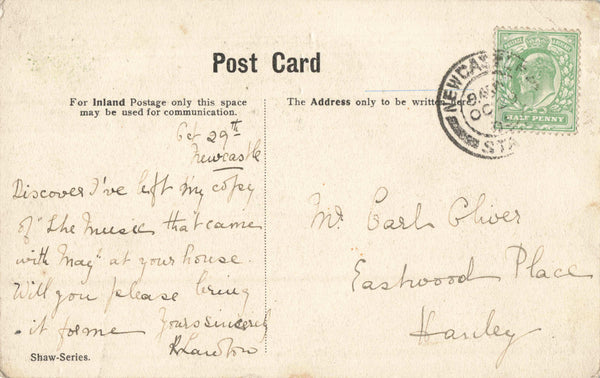 Post Card
For Inland Postage only this space
may be used for communication.
The Address only to be written here.
NEWCASTLE
OC
STA
HALF PENNY
Oct 29th
Newcastle
Discover I've left my copy
of "The Music that came
with May" at your house.
Will you please bring
it for me Yours sincerely
Lawton
Mr Earl Oliver
Eastwood Place
Hanley
Shaw-Series.